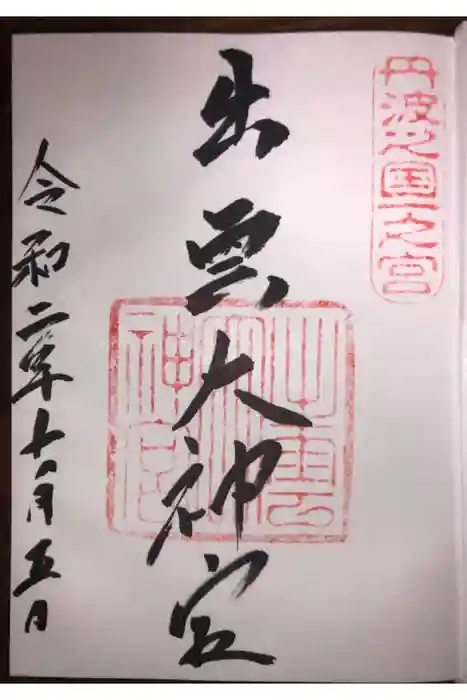 丹波之国一之宮
出雲大神宮
出雲
大
神宮
令和二年十一月五日